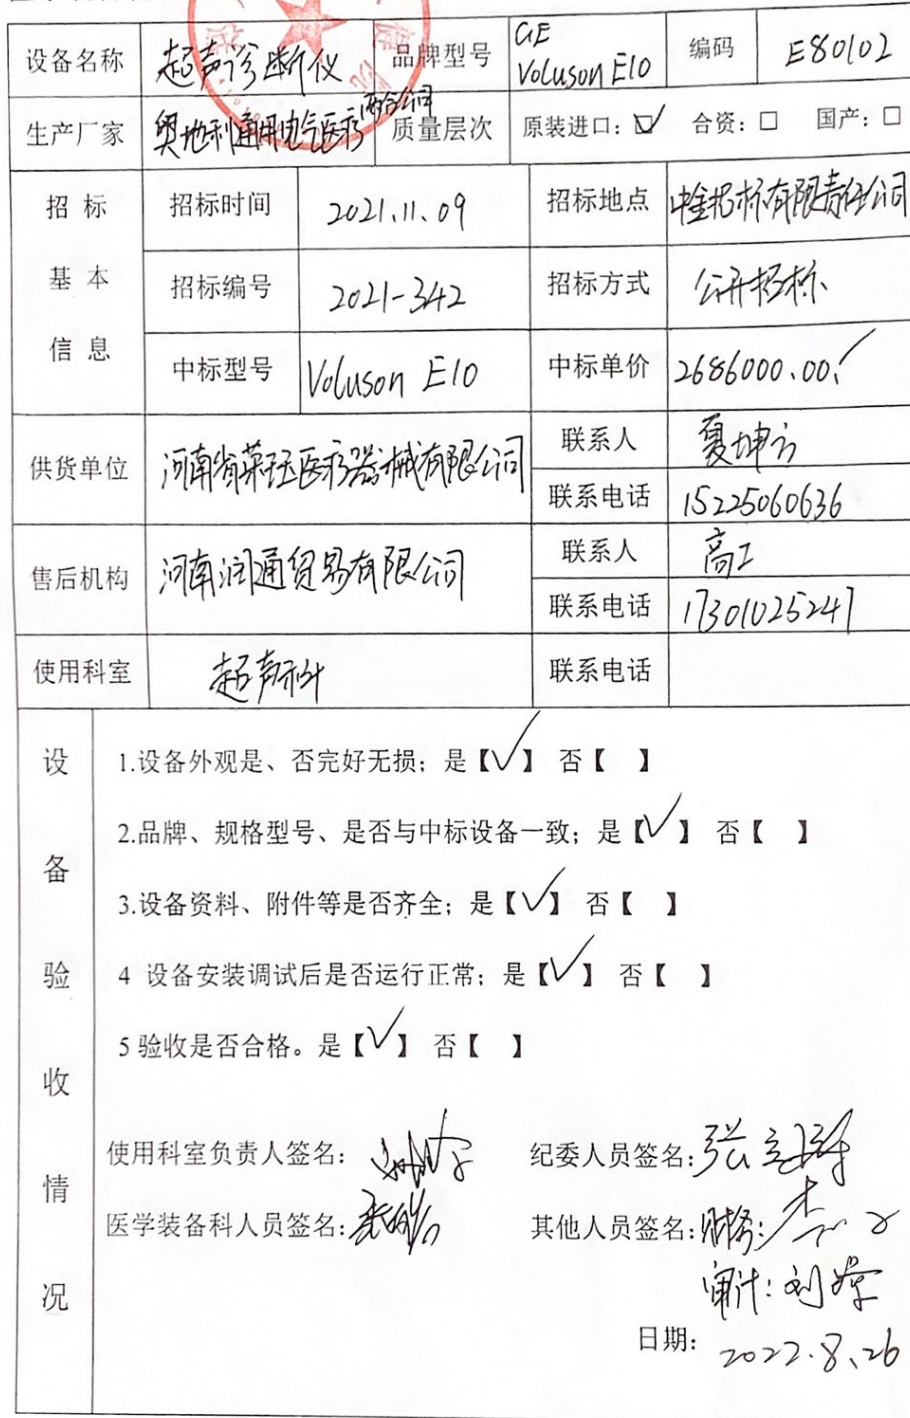 设备名称 超声诊断仪 品牌型号 GE Voluson E10 编码 E80102
生产厂家 奥地利通用电气医疗两合公司 质量层次 原装进口：☑ 合资：□ 国产：□
招标基本信息
招标时间 2021.11.09 招标地点 中金招标有限责任公司
招标编号 2021-342 招标方式 公开招标
中标型号 Voluson E10 中标单价 2686000.00
供货单位 河南省莱珏医疗器械有限公司 联系人 夏坤方
联系电话 15225060636
售后机构 河南润通贸易有限公司 联系人 高工
联系电话 17301025247
使用科室 超声科 联系电话
设备验收情况
1.设备外观是、否完好无损；是【√】 否【 】
2.品牌、规格型号、是否与中标设备一致；是【√】 否【 】
3.设备资料、附件等是否齐全；是【√】 否【 】
4 设备安装调试后是否运行正常；是【√】 否【 】
5 验收是否合格。是【√】 否【 】
使用科室负责人签名： 纪委人员签名：张
医学装备科人员签名： 其他人员签名：财务：
审计：刘
日期：2022.8.26